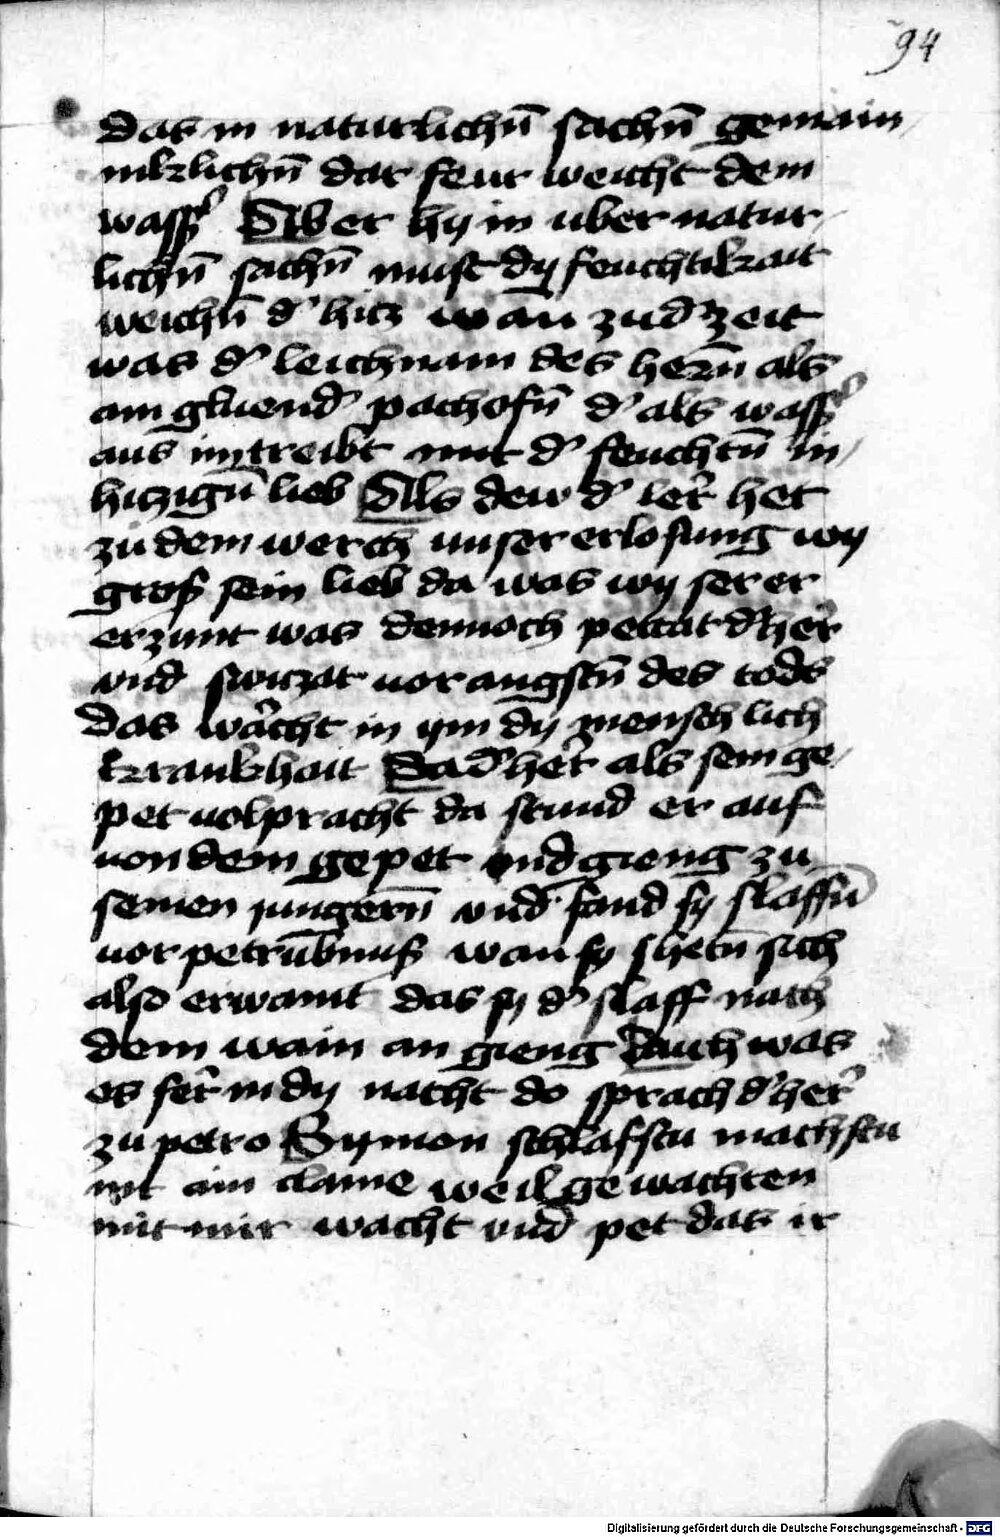 94
das in naturlichn̄ sachn̄ gemain
niklichn̄ dat feur weicht dem
wasß̉ Aber hy in uber natur
lichn̄ sachn̄ must dy feuchtikait
weichn̄ d' hitz wan̄ zu d' zeit
was d' leichnam des hern̄ als
ain gluend' pachofn̄ d' als wasß̉
aus im treibt mit d' feuchtn̄ in
hitzign̄ lieb Als dew d' ler̉ het
zu dem werch unser erlosung wy
gros sein lieb da was wy ser er
erzunt was dennoch petat d' her̉
und switzat uor angstn̄ des tods
das wacht in ym dy menschlich
krankhait Da d' her̉ als sein ge
pet uolpracht da stund er auf
uon dem gepet und gieng zu
seinen jungern̄ und fand sy slaffn̄
uor petrubnus wan sy hetn̄ sich
also erwaint das sy d' slaff nach
dem wain an gieng Auch was
es fer̉ in dy nacht do sprach d' her̉
zu petro Symon schlafstu machstu
nit ain claine weil gewachten
mit mir wacht und pet das ir
Digitalisierung gefördert durch die Deutsche Forschungsgemeinschaft - DFG